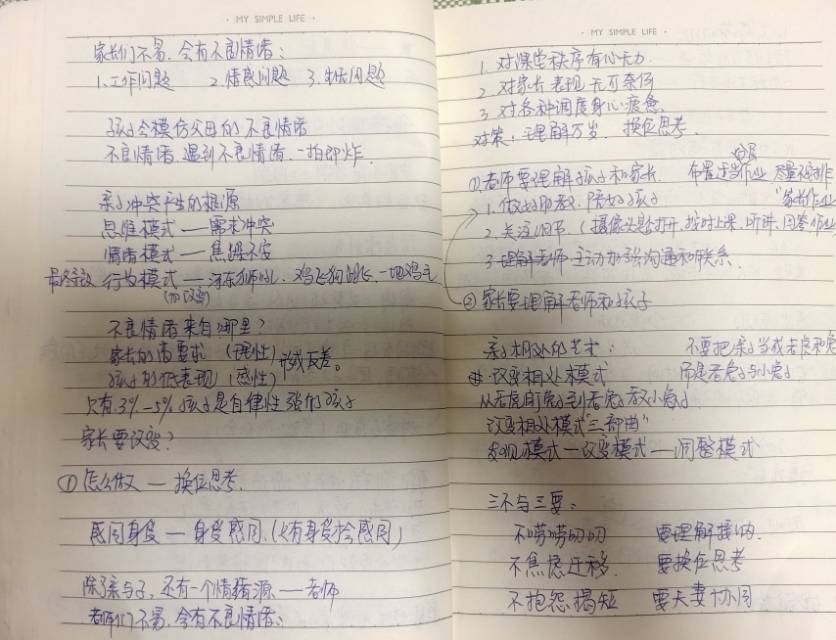 · MY SIMPLE LIFE ·
家长们不易,会有不良情绪:
1.工作问题 2.情感问题 3.生活问题
孩子会模仿父母的不良情绪
不良情绪遇到不良情绪,一拍即炸.
亲子冲突产生的根源
思维模式——需求冲突
情绪模式——焦虑不安
最终导致 行为模式——河东狮吼、鸡飞狗跳、一地鸡毛
(你改变)
不良情绪来自哪里?
家长的高要求 (理性)
孩子的低表现 (感性) 形成反差。
只有3%-5%孩子是自律性强的孩子
家长要改变?
① 怎么做 — 换位思考.
感同身受 — 身受感同.(只有身受才会感同)
除了亲与子,还有一个情绪源——老师
老师们不易,会有不良情绪:
· MY SIMPLE LIFE ·
1. 对课堂秩序有心无力.
2. 对家长表现无可奈何
3. 对各种调度身心疲惫.
对策: 理解万岁. 换位思考.
①老师要理解孩子和家长. 布置适当作业 尽量不安排
"家长作业"
1. 做好助教、陪好孩子
2. 关注细节 (摄像头是否打开,按时上课、听讲、回答作业
3. 理解老师 主动加强沟通和联系.
② 家长要理解老师和孩子
亲子相处的艺术: 不要把亲子当成老虎和兔
改变相处模式 而是老兔子与小兔子
从老虎盯兔子到老兔子教小兔子
改变相处模式"三部曲"
发现模式—改变模式—调整模式
三不与三要:
不唠唠叨叨 要理解接纳.
不焦虑迁移. 要换位思考
不抱怨揭短 要夫妻协同